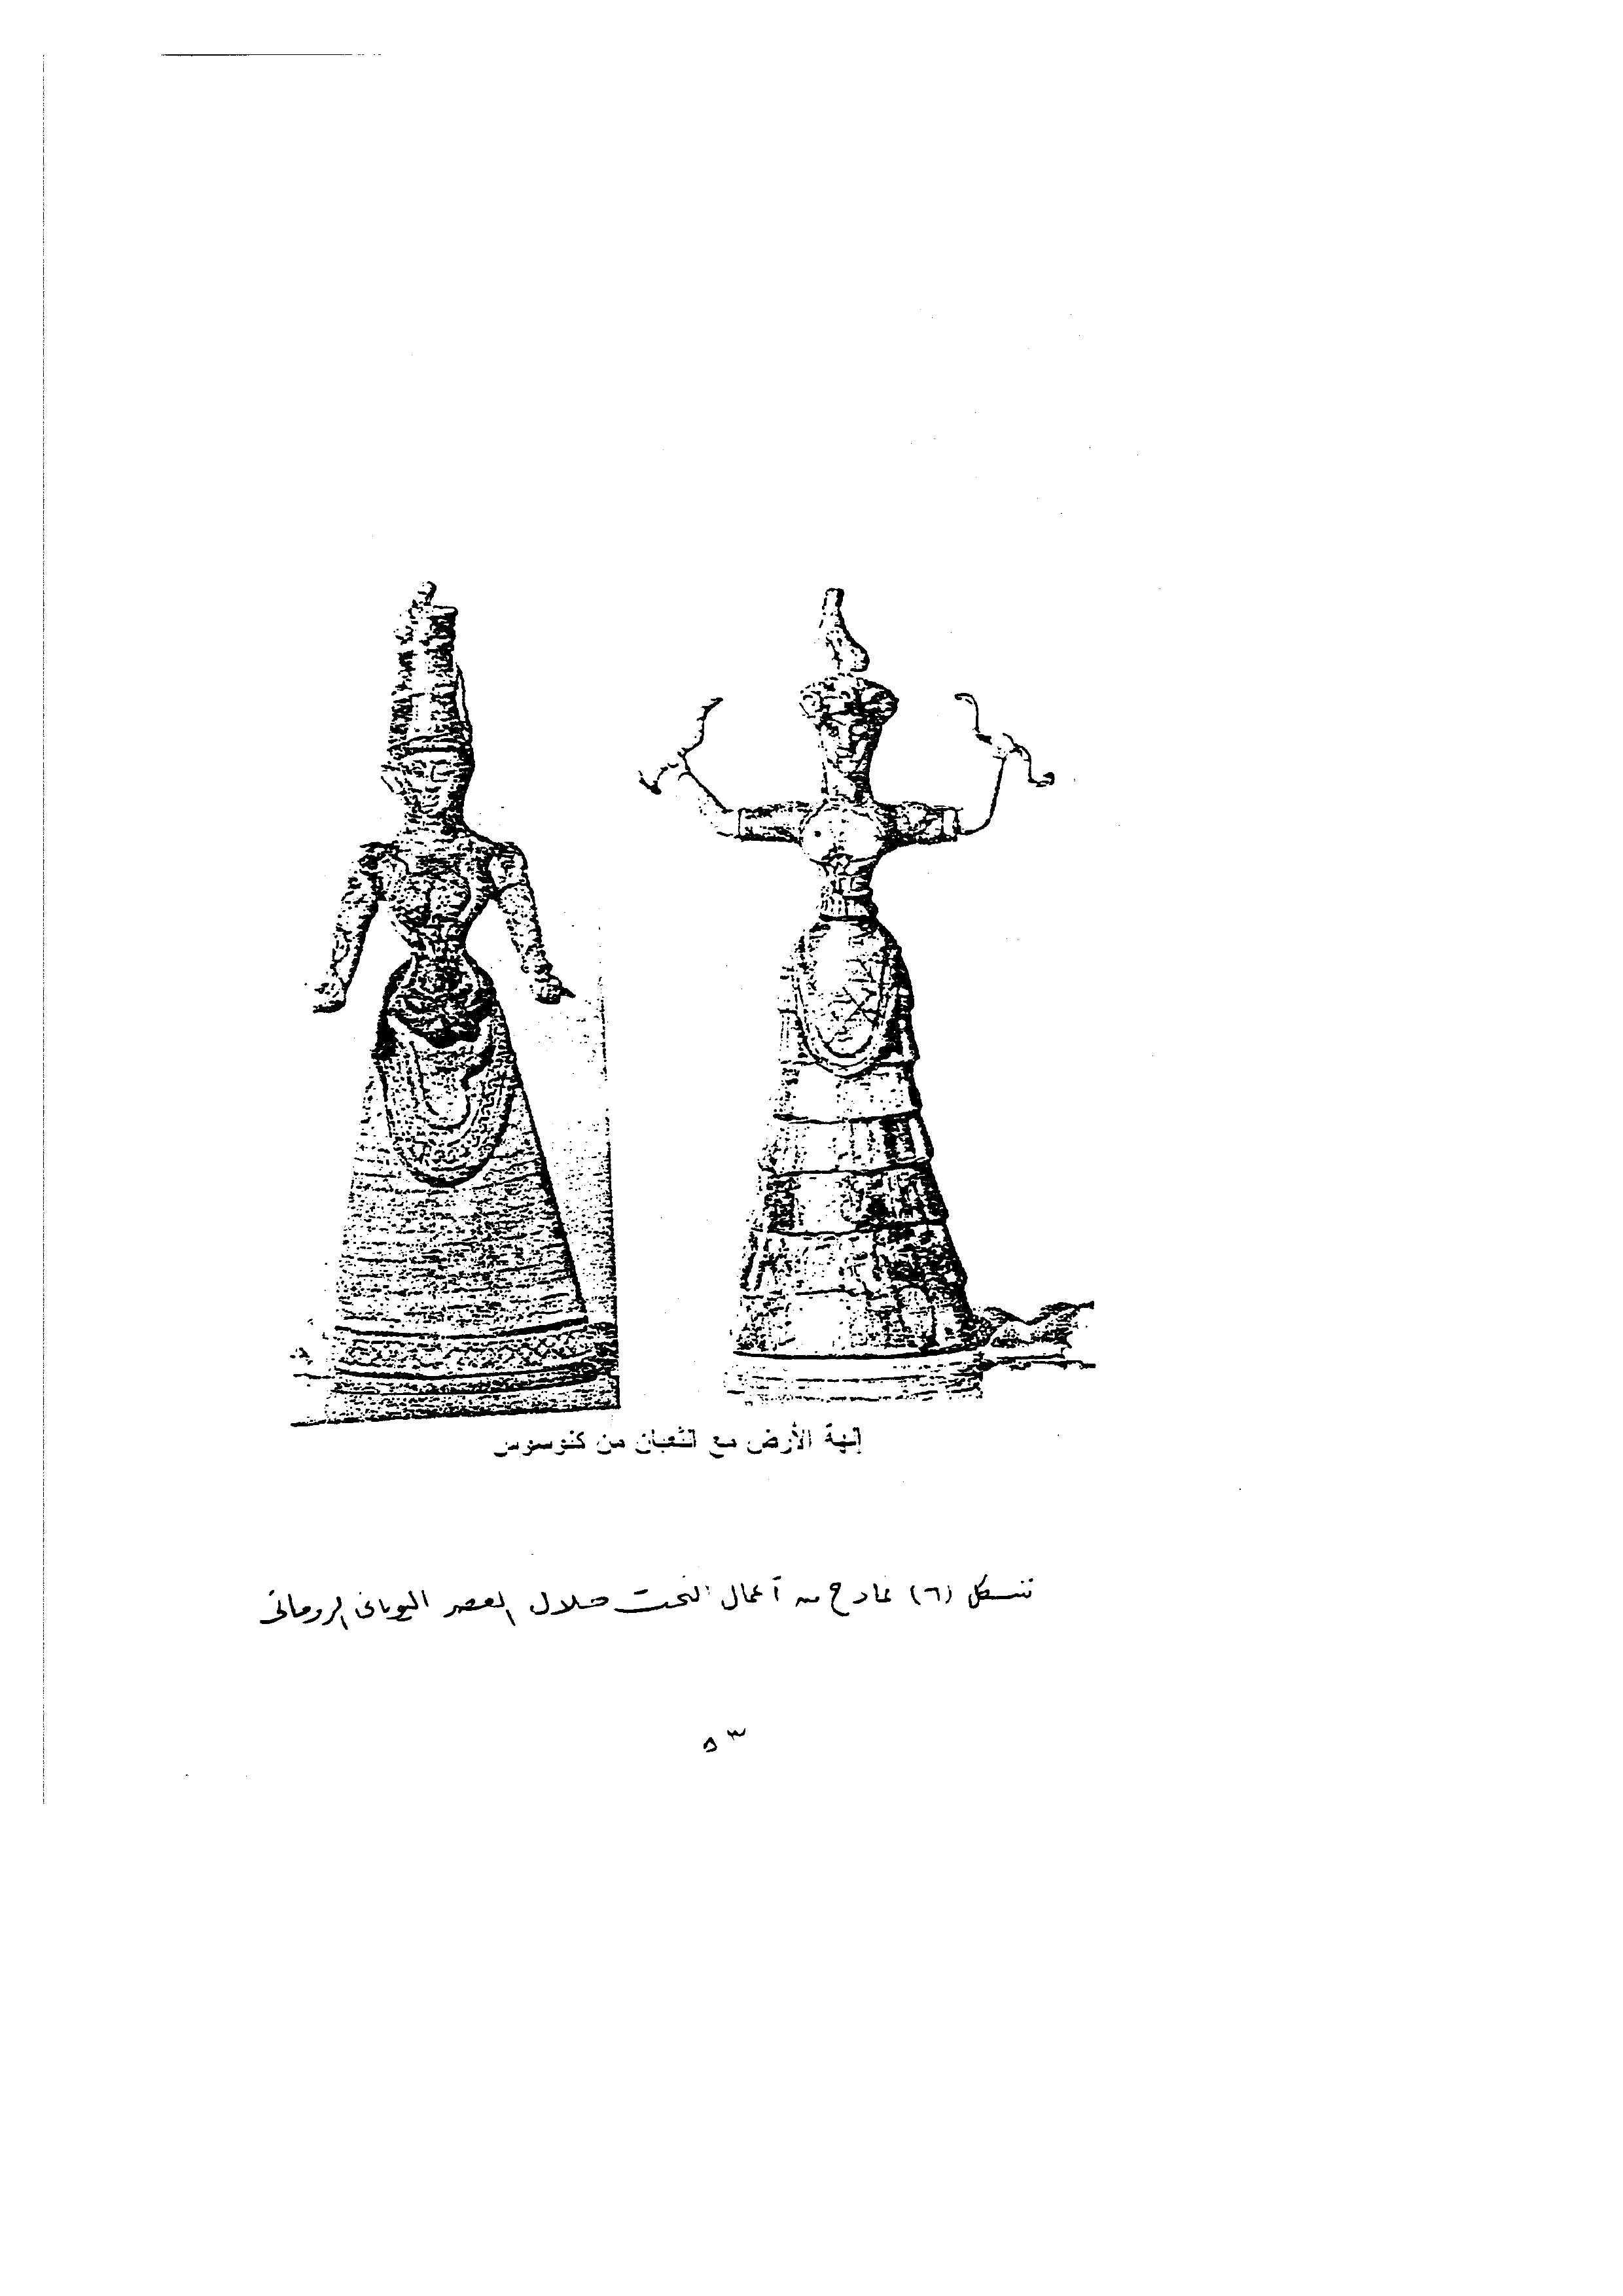 إلهة الأرض مع الثعبان من كنوسوس
شكل (٦) نماذج من أعمال النحت خلال العصر اليونانى الرومانى
٥٣